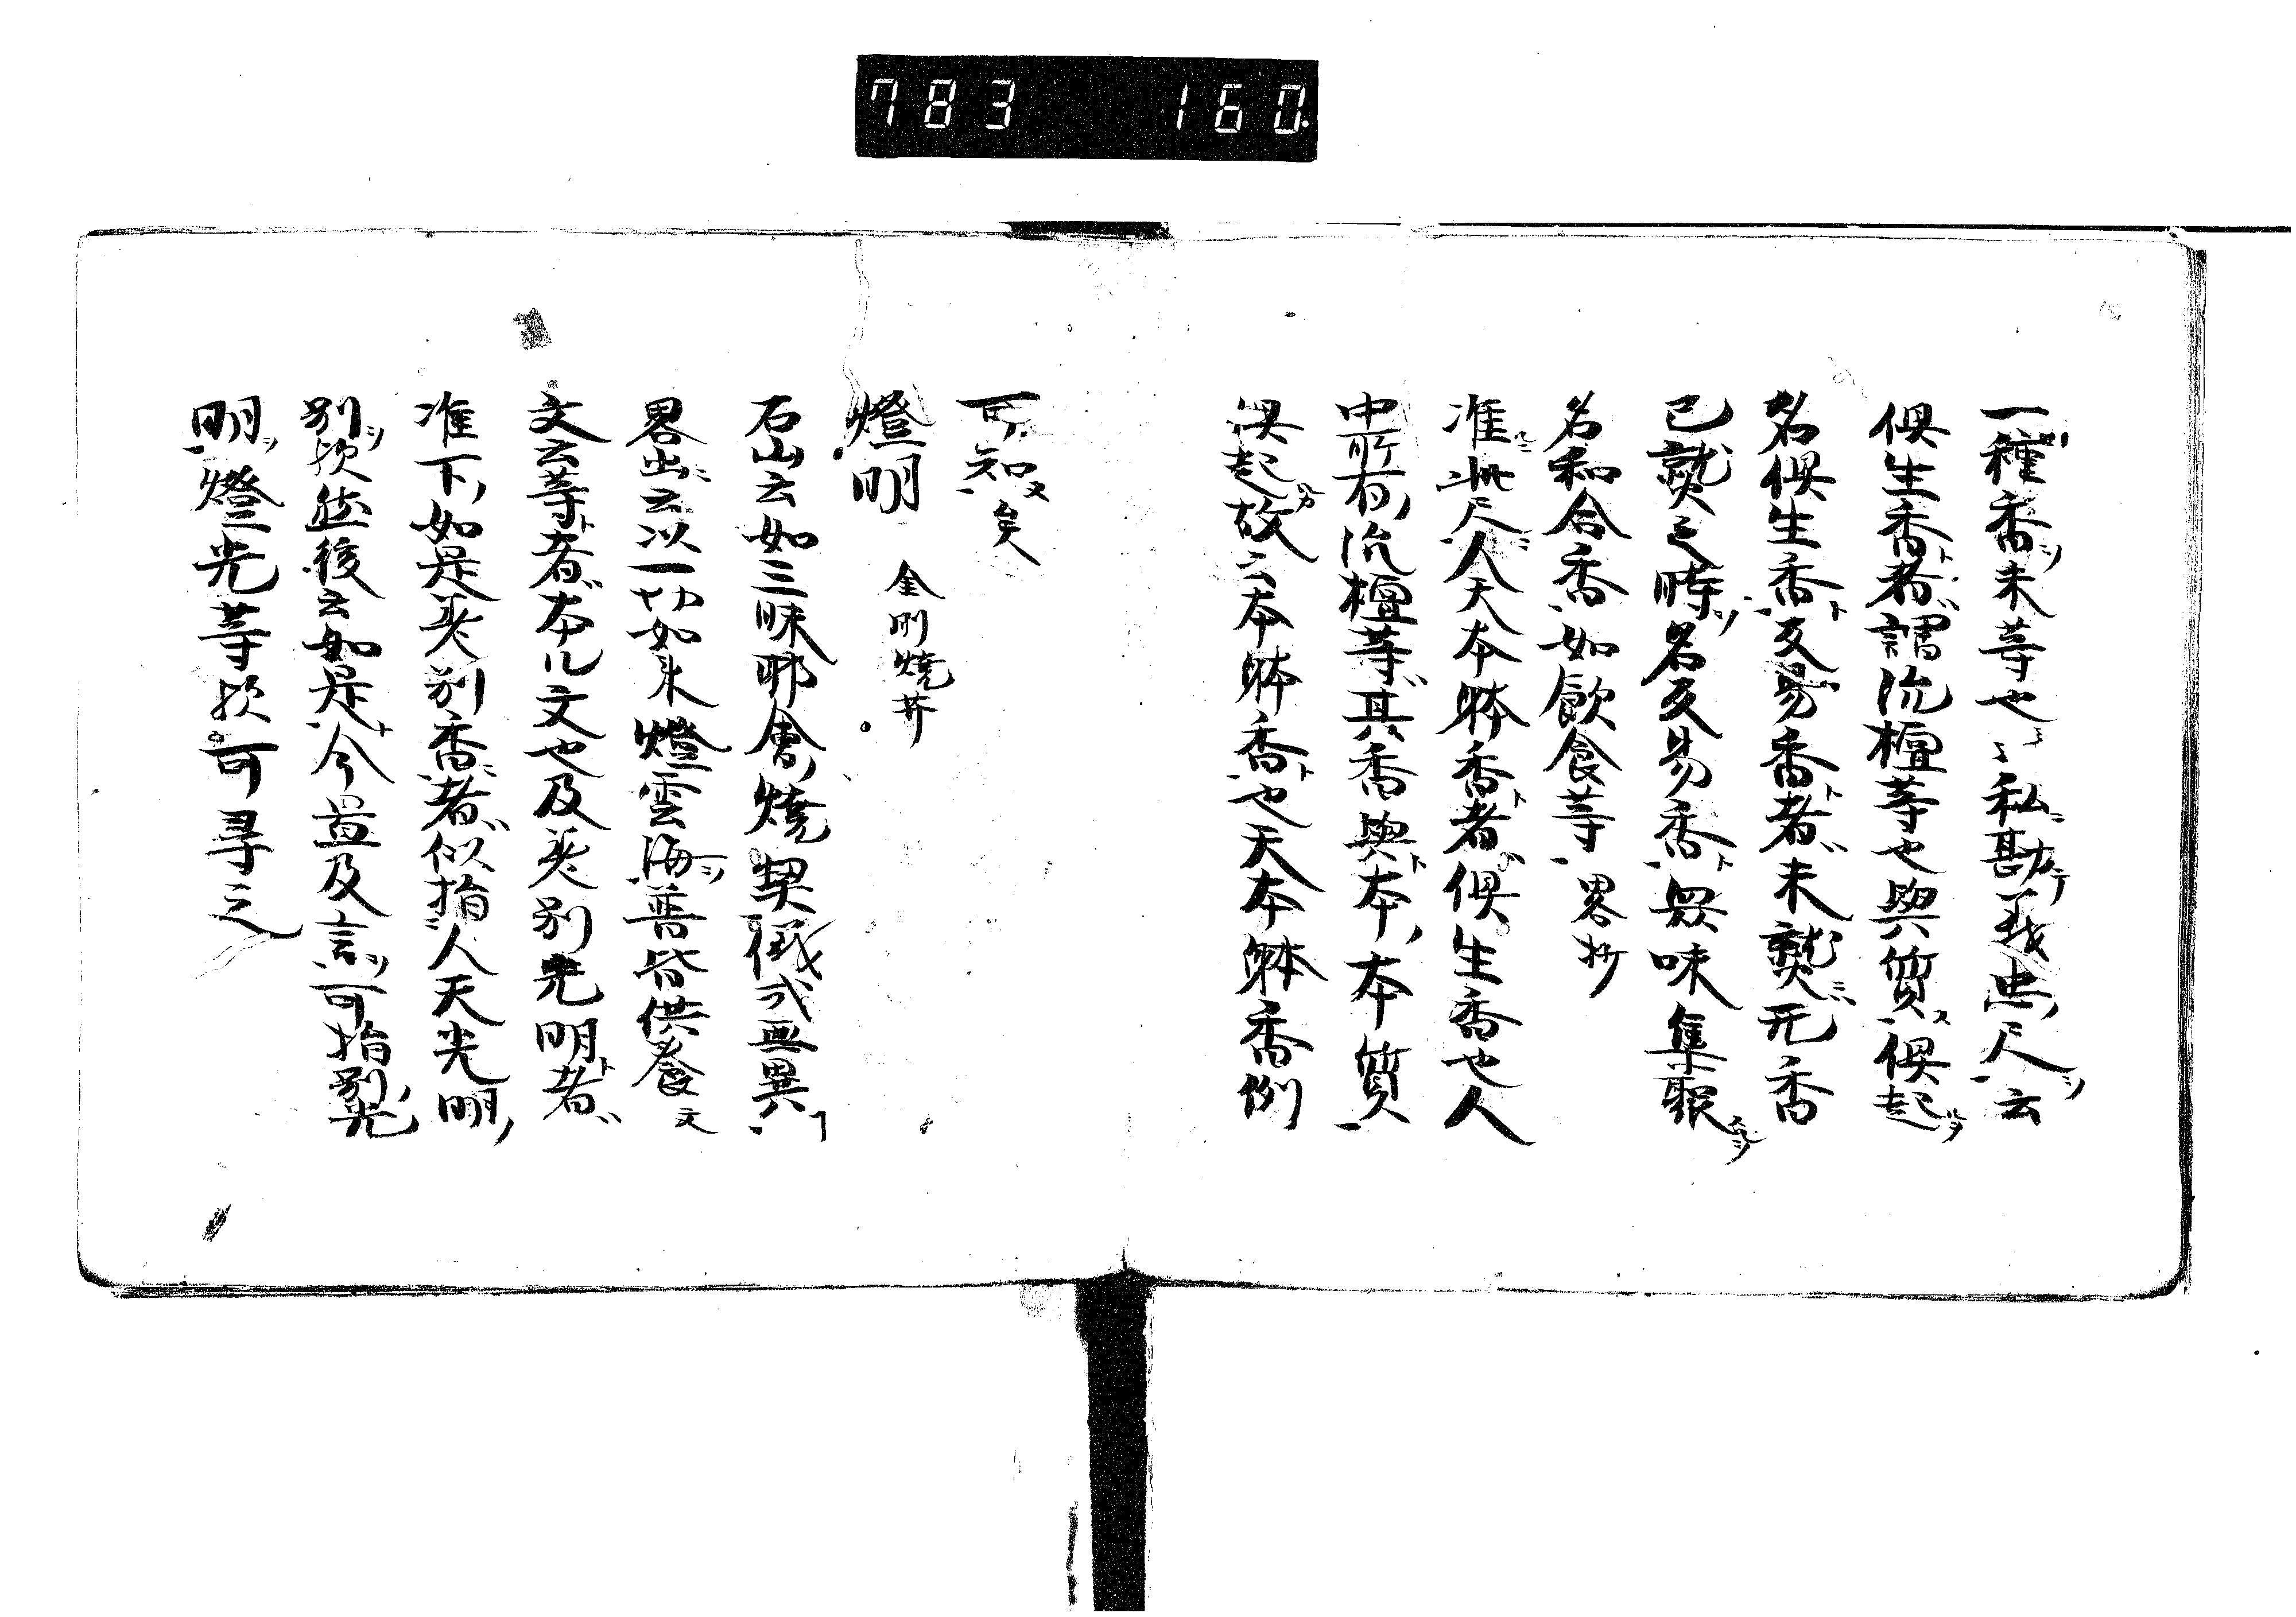 783 160.
一種香末等也ミ私勘義忠尺云
俱生香者謂沉檀等也與質俱起
名俱生香変易香者未熟无香
已熟之時名変易香眾味集聚
名和合香如飲食等 畧抄
准此尺人天本躰香者俱生香也人
中所有沉檀等其香與本本質
俱起故云本躰香也天本躰香例
可知矣
燈明 金剛燒井
石山云如三昧耶會燒契儀式無異
畧出云以一切如来燈雲海普皆供養文
文云等者本儿文也及差別光明者
准下如是差別香者似指人天光明
別欤然後云如是今置及言可指別光
明燈光等欤可尋之